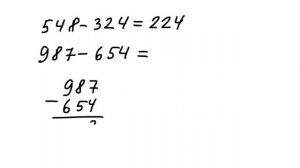 548-324=224
987-654=
987
-
654